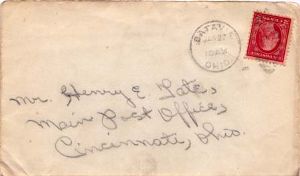 BATAVIA
OHIO
Mr. Henry E. Pate,
Main Post Office,
Cincinnati, Ohio.